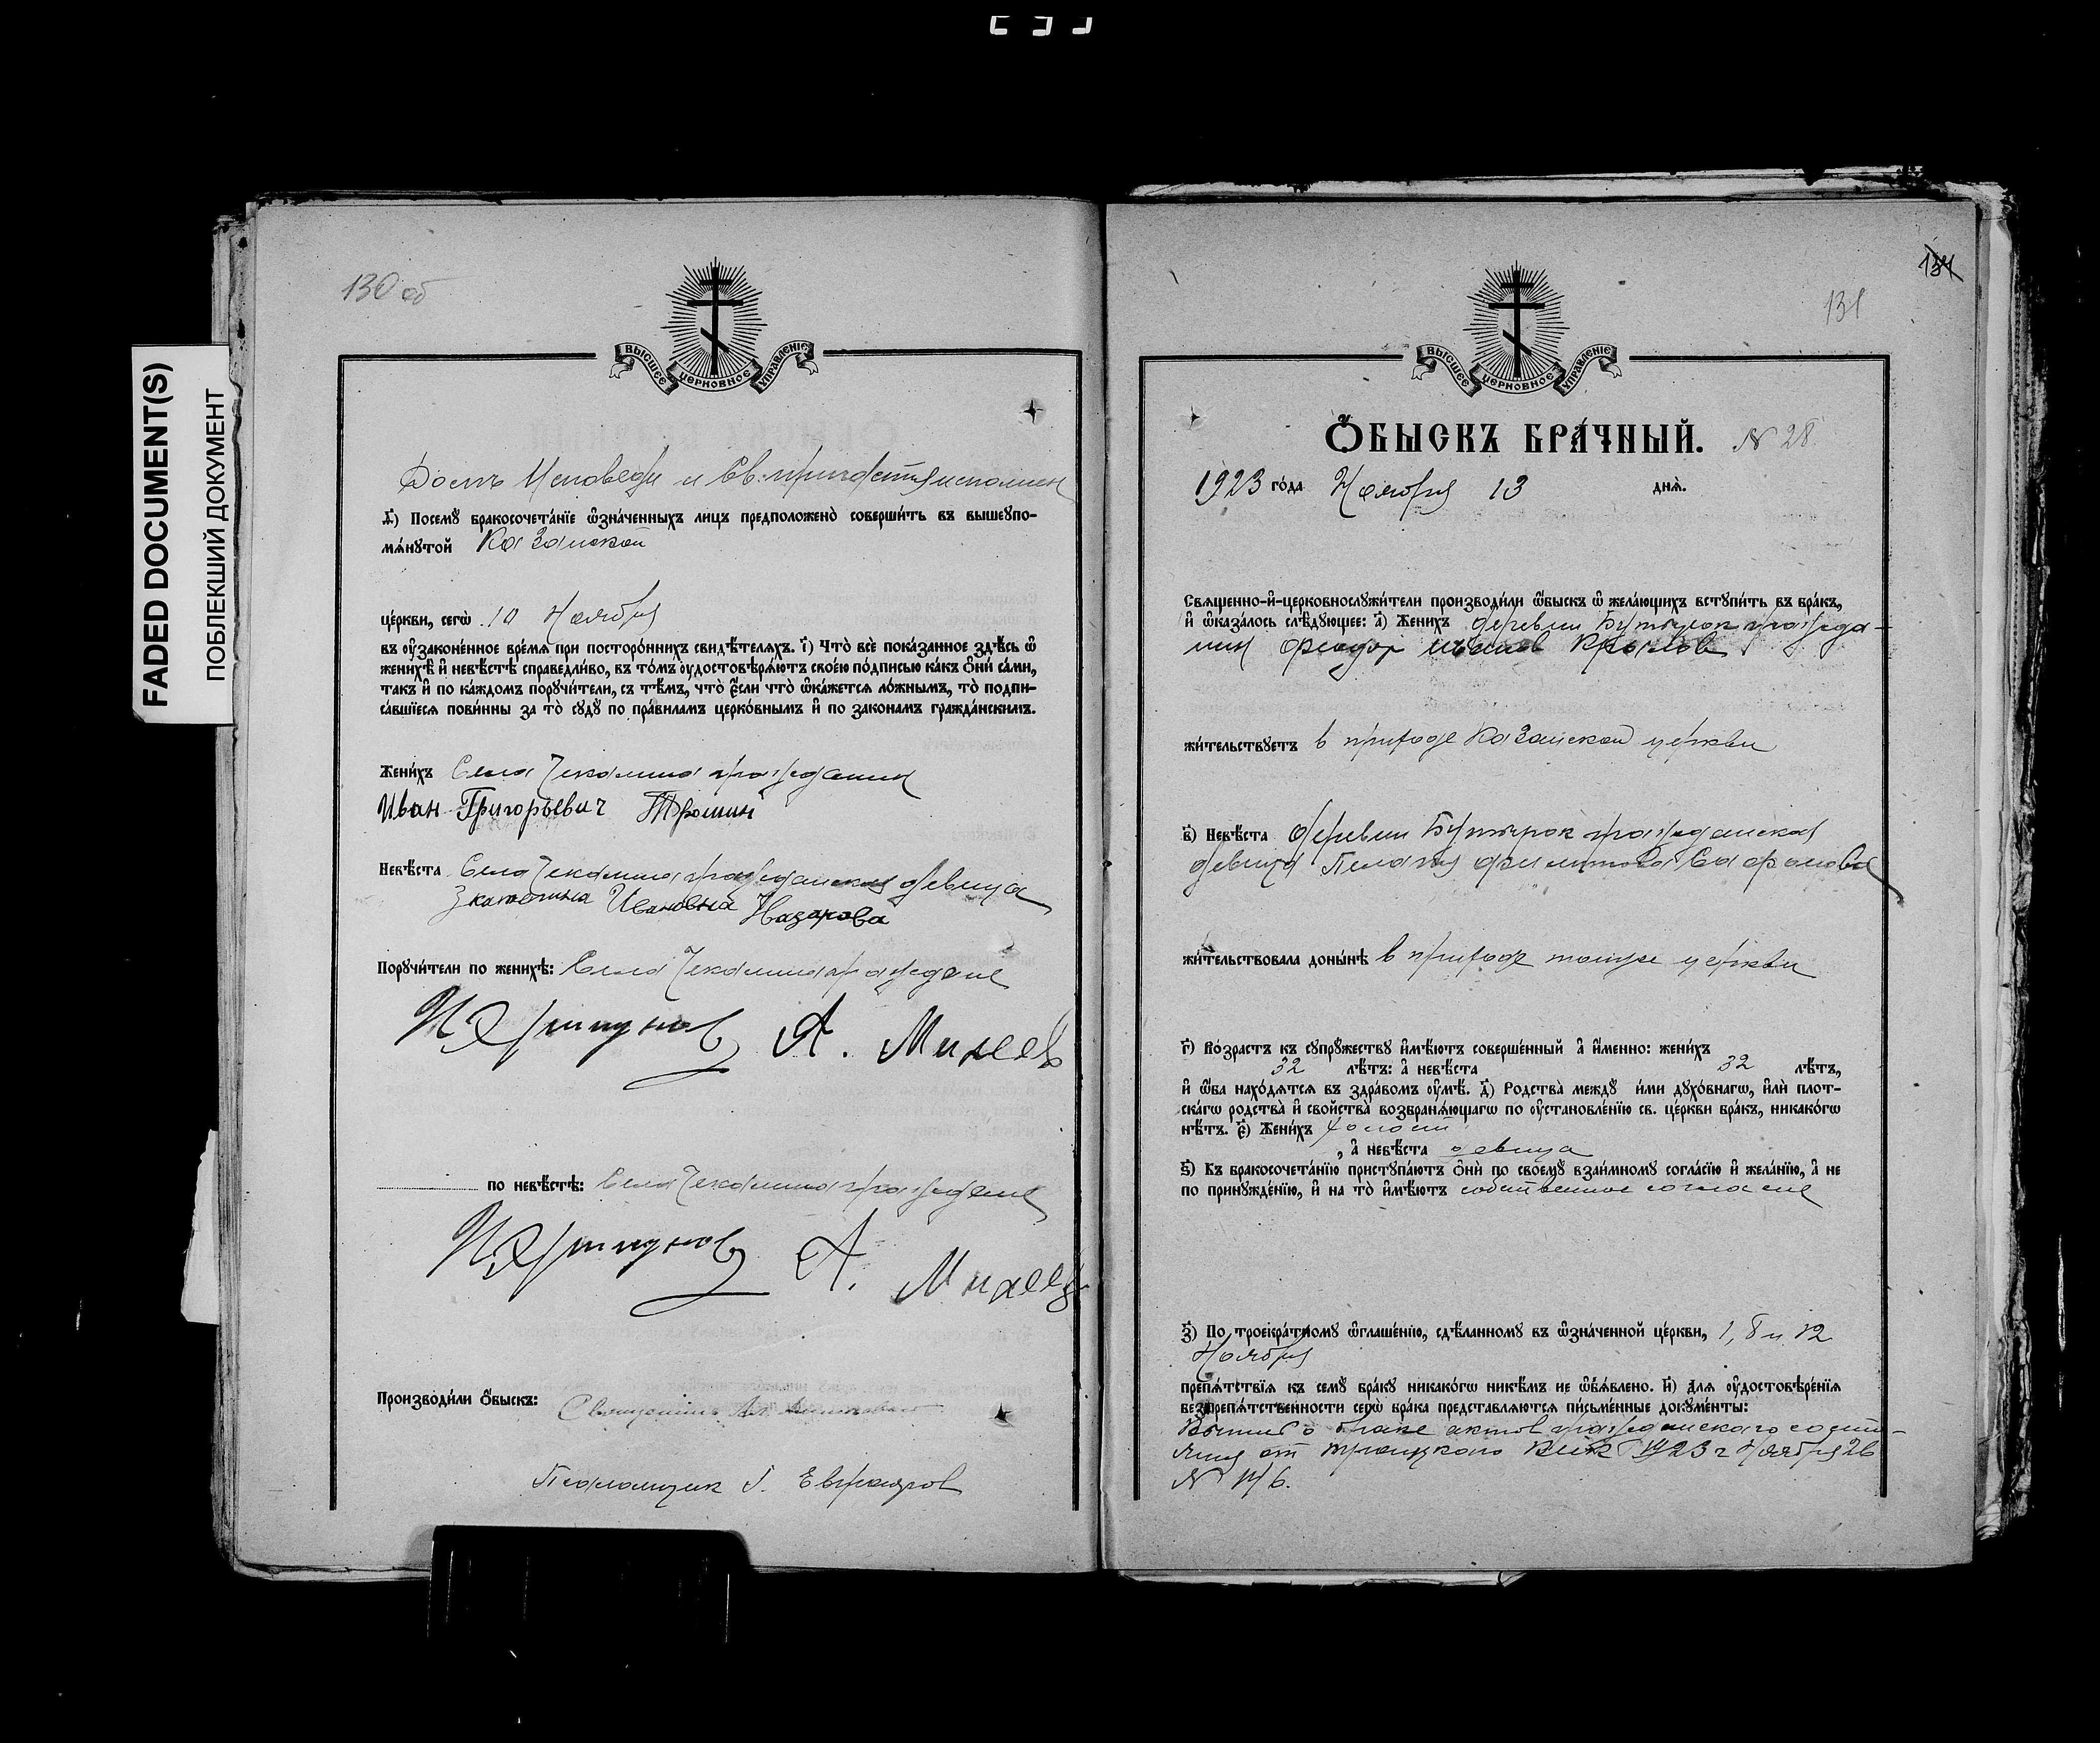 FADED DOCUMENT(S)
ПОБЛЕКШИЙ ДОКУМЕНТ
130 об
ВЫСШЕЕ ЦЕРКОВНОЕ УПРАВЛЕНІЕ
Долг Исповеди и Св. причастия исполнен
Ѳ҃) Посемꙋ̀ бракосочета́нїе ѡ҆зна́ченныхъ лицъ предположенò соверши́ть въ вышеупо-
мѧ́нꙋтой Казанской
це́ркви, сегѡ̀ 10 Ноября
въ ᲂу҆зако́ненное вре́мѧ при посторо́ннихъ свидѣ́телѧхъ. і҃) Чтò всѐ пока́занное здѣ́сь ѡ҆
женихѣ̀ и҆ невѣ́стѣ справедли́во, въ то́мъ ᲂу҆достовѣрѧ́ютъ свое́ю по́дписью ка́къ ѻ҆нѝ са́ми,
та́къ и҆ по ка́ждомъ порꙋчи́тели, съ тѣ́мъ, чтò є҆́сли чтò ѡ҆ка́жетсѧ ло́жнымъ, тò подпи-
са́вшїесѧ пови́нны за тò сꙋдꙋ̀ по пра́виламъ церко́внымъ и҆ по зако́намъ гражда́нскимъ.
Жени́хъ Села Чекалина гражданин
Иван Григорьевич Трошин
Невѣ́ста Села Чекалина гражданская девица
Екатерина Ивановна Назарова
Порꙋчи́тели по женихѣ̀: Села Чекалина граждане
А. Михеев
по невѣ́стѣ: Села Чекалина граждане
А. Михеев
Производи́ли ѻ҆́быскъ: Священник Ал.
Псаломщик
131
ВЫСШЕЕ ЦЕРКОВНОЕ УПРАВЛЕНІЕ
Ѻ҆́БЫСКЪ БРА́ЧНЫЙ. № 28
1923 го́да Ноября 13 днѧ̀.
Свѧще́нно-и҆-церковнослꙋжи́тели производи́ли ѻ҆́быскъ ѡ҆ жела́ющихъ встꙋпи́ть въ бра́къ,
и҆ ѡ҆каза́лось слѣ́дꙋющее: а҃) Жени́хъ деревни Бутырок гражда-
нин Феодор Крылов
жи́тельствꙋетъ в приходе Казанской церкви
в҃) Невѣ́ста деревни Бутырок гражданская
девица Пелагия Филиппова Сафонова
жи́тельствовала доны́нѣ в приходе тойже церкви
г҃) Во́зрастъ къ сꙋпрꙋ́жествꙋ и҆мѣ́ютъ соверше́нный а҆ и҆́менно: жени́хъ
32 лѣ́тъ: а҆ невѣ́ста 32 лѣ́тъ,
и҆ ѻ҆́ба нахо́дѧтсѧ въ здра́вомъ ᲂу҆мѣ̀. д҃) Родства̀ междꙋ̀ и́ми дꙋхо́внагѡ, и҆лѝ плот-
ска́гѡ родства̀ и҆ сво́йства возбранѧ́ющагѡ по ᲂу҆становле́нїю св. це́ркви бра́къ, никако́гѡ
нѣ́тъ. є҃) Жени́хъ холост
, а҆ невѣ́ста девица
ѕ҃) Къ бракосочета́нїю пристꙋпа́ютъ ѻ҆нѝ по своемꙋ̀ взаи́мномꙋ согла́сїю и҆ жела́нїю, а҆ не
по принꙋжде́нїю, и҆ на тò и҆мѣ́ютъ собственное согласие
з҃) По троекра́тномꙋ ѡ҆глаше́нїю, сдѣ́ланномꙋ въ ѡ҆зна́ченной це́ркви, 1, 8 и 12
Ноября
препѧ́тствїѧ къ семꙋ̀ бра́кꙋ никако́гѡ никѣ́мъ не ѡ҆б̾ѧ́влено. и҃) Длѧ ᲂу҆достовѣре́нїѧ
безпрепѧ́тственности сегѡ̀ бра́ка представлѧ́ютсѧ пи́сьменные докꙋме́нты:
о браке актов гражданского состо-
яния от Троицкого 1923 г Ноября
№